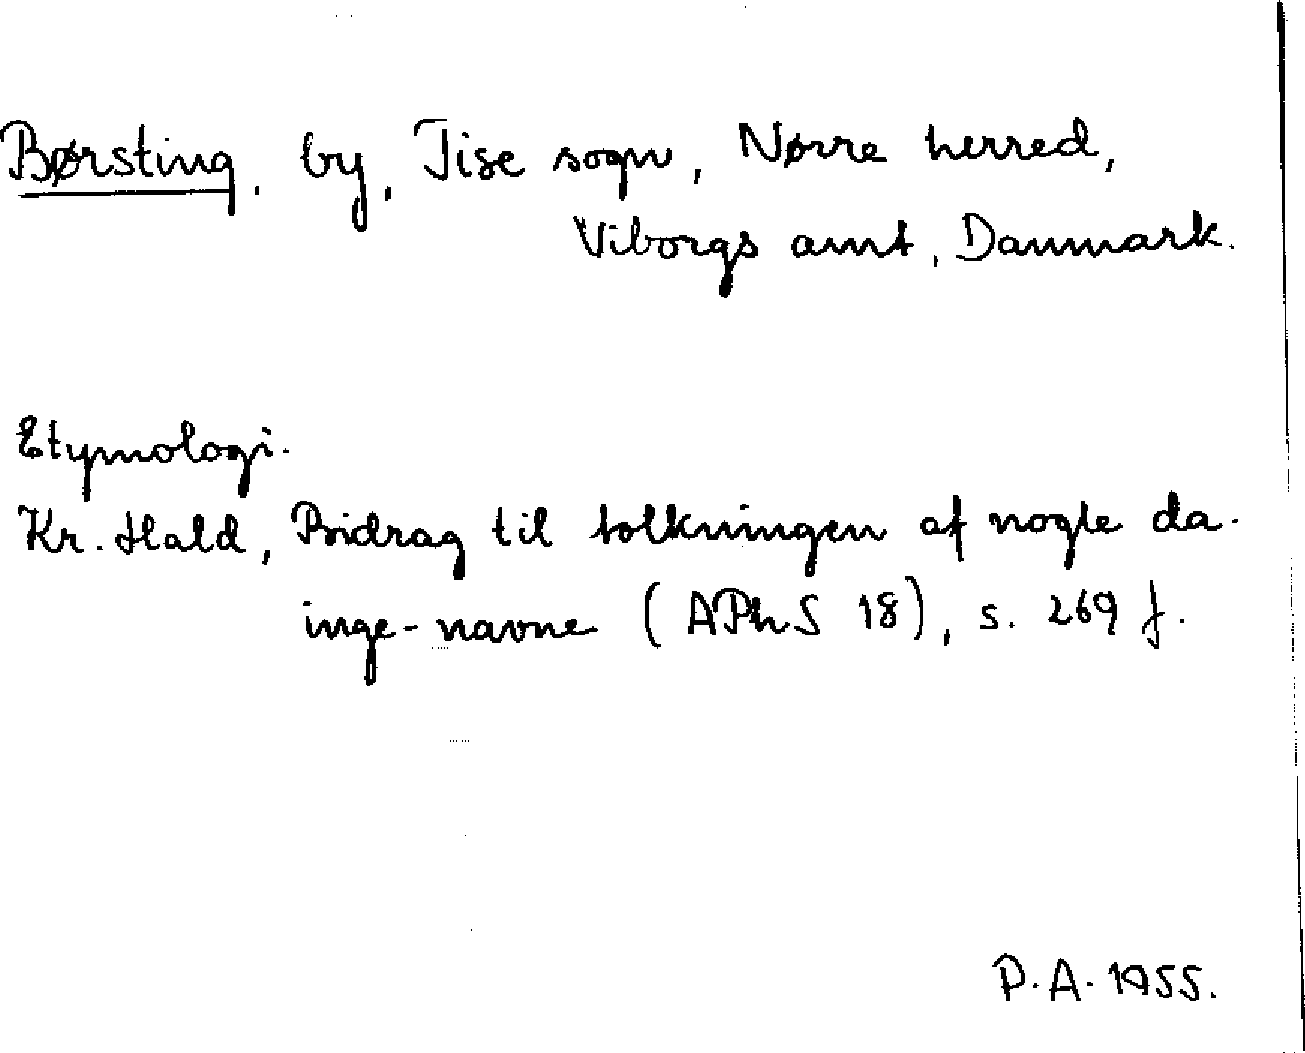 Børsting, by, Tise sogn, Nørre herred,
Viborgs amt, Danmark.
Etymologi.
Kr. Hald, Bidrag til tolkningen af nogle da.
inge-navne (APhS 18), s. 269 f.
P.A. 1955.